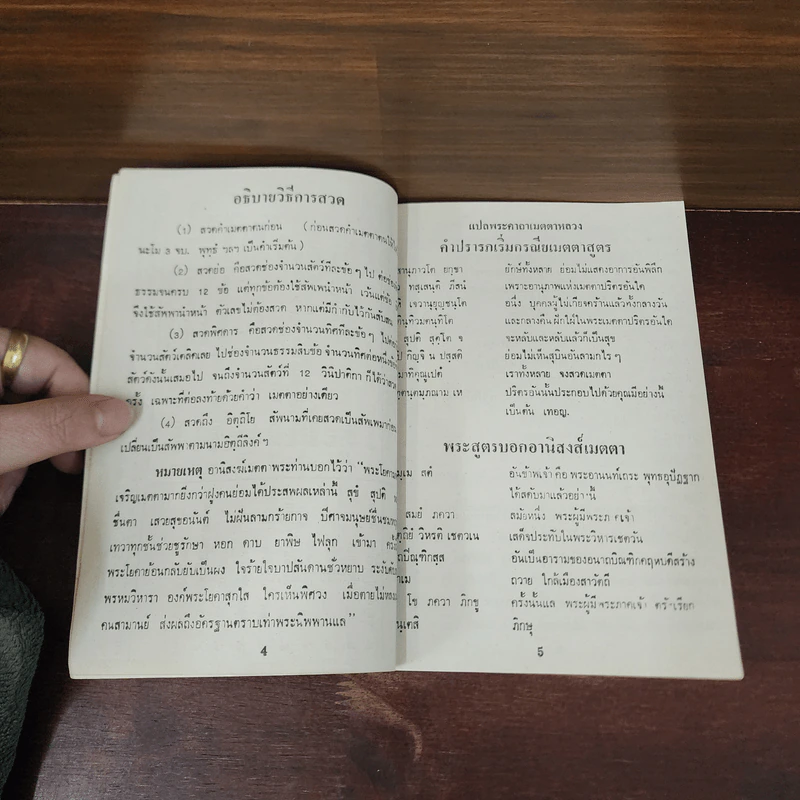 อธิบายวิธีการสวด
(1) สวดคำเมตตาตนก่อน (ก่อนสวดคำเมตตาตนให้
นะโม 3 จบ. พุทฺธํ ฯลฯ เป็นคำเริ่มต้น)
(2) สวดย่อ คือสวดช่องจำนวนสัตว์ทีละข้อๆ ไป ต่อช่อง
ธรรมจนครบ 12 ข้อ แต่ทุกข้อต้องใช้สัพเพนำหน้า เว้นแต่ข้อ
จึงใช้สัพพานำหน้า ตัวเลขไม่ต้องสวด หากแต่มีกำกับไว้กันสับสน
(3) สวดพิศดาร คือสวดช่องจำนวนทิศทีละข้อๆ ไปต่อ
จำนวนสัตว์เดลิดเลย ไปช่องจำนวนธรรมสิบข้อ จำนวนทิศต่อหนึ่ง
สัตว์ดังนั้นเสมอไป จนถึงจำนวนสัตว์ที่ 12 วินิปาติกา ก็ได้ว่า
ครั้ง เฉพาะที่ต่อลงท้ายด้วยคำว่า เมตตาอย่างเดียว
(4) สวดถึง อิตฺถิโย สัพนามที่เคยสวดเป็นสัพเพมาก่อน
เปลี่ยนเป็นสัพพาตามนามอิตฺถีลิงค์ฯ
หมายเหตุ อานิสงฆ์เมตตา พระท่านบอกไว้ว่า "พระโยคา
เจริญเมตตามากยิ่งกว่าฝูงคนย่อมได้ประสพผลเหล่านี้ สุขํ สุปติ
ชื่นตา เสวยสุขอนันต์ ไม่ฝันลามกร้ายกาจ ปีศาจมนุษย์ชื่นชม
เทวาทุกชั้นช่วยชูรักษา หอก ดาบ ยาพิษ ไฟลุก เข้ามา
พระโยคาย้อนกลับยับเป็นผง ใจร้ายใจบาปสันดานชั่วหยาบ ระงับ
พรหมวิหารา องค์พระโยคาสุกใส ใครเห็นพิศวง เมื่อตายไม่หลง
คนสามานย์ ส่งผลถึงอัครฐานตราบเท่าพระนิพพานแล"
4
แปลพระคาถาเมตตาหลวง
คำปรารภเริ่มกรณียเมตตาสูตร
านุภาวโต ยกฺขา ยักษ์ทั้งหลาย ย่อมไม่แสดงอาการอันพิลึก
ทสฺเสนฺติ ภึสนํ เพราะอานุภาพแห่งเมตตาปริตรอันใด
เจวานุยุญฺชนฺโต อนึ่ง บุคคลผู้ไม่เกียจคร้านแล้วทั้งกลางวัน
นฺทิวมตนฺทิโต และกลางคืน ฝักใฝ่ในพระเมตตาปริตรอันใด
สุปติ สุตฺโต จ จะหลับและหลับแล้วก็เป็นสุข
กิญฺจิ น ปสฺสติ ย่อมไม่เห็นสุบินอันลามกใดๆ
าทิคุณูเปตํ เราทั้งหลาย จงสวดเมตตา
ตนฺตมฺภณาม เห ปริตรอันนั้นประกอบไปด้วยคุณมีอย่างนี้
เป็นต้น เทอญ.
พระสูตรบอกอานิสงส์เมตตา
มฺเม สุตํ อันข้าพเจ้า คือ พระอานนท์เถระ พุทธอุปัฏฐาก
ได้สดับมาแล้วอย่างนี้
สมยํ ภควา สมัยหนึ่ง พระผู้มีพระภาคเจ้า
ตฺถิยํ วิหรติ เชตวเน เสด็จประทับในพระวิหารเชตวัน
ถปิณฺฑิกสฺส อันเป็นอารามของอนาถบิณฑิกคฤหบดีสร้าง
าเม ถวาย ใกล้เมืองสาวัตถี
โข ภควา ภิกฺขู ครั้งนั้นแล พระผู้มีพระภาคเจ้า ตรัสเรียก
นฺเตสิ ภิกษุ
5